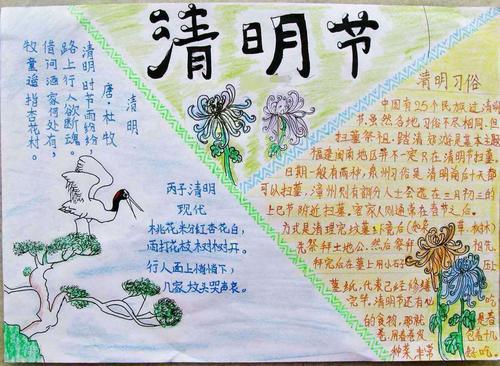 清明节
清明
唐·杜牧
清明时节雨纷纷
路上行人欲断魂。
借问酒家何处有,
牧童遥指杏花村。
丙子清明
现代
桃花粉红杏花白,
雨打花枝树树开。
行人面上悄悄下,
几家坟头哭声哀。
清明习俗
中国有25个民族过清明
节,虽然各地习俗不尽相同,但
扫墓祭祖、踏清郊游是基本主题
福建闽南地区并不一定只在清明节扫墓
日期一般有两种,泉州习俗是清明前后十天都
可以扫墓,漳州则有部分人士会选在三月初三的
上巳节附近扫墓,客家人则通常在春节之后。
方式是清理完坟墓环境后(如杂草、树木)
先祭拜土地公,然后祭拜 祖先
拜完后在墓上用小石子 压
墓纸,代表已经修缮
完毕。清明节还有
的食物,那就 是春
卷,用春卷皮 包着十几
种菜 非常 好吃。